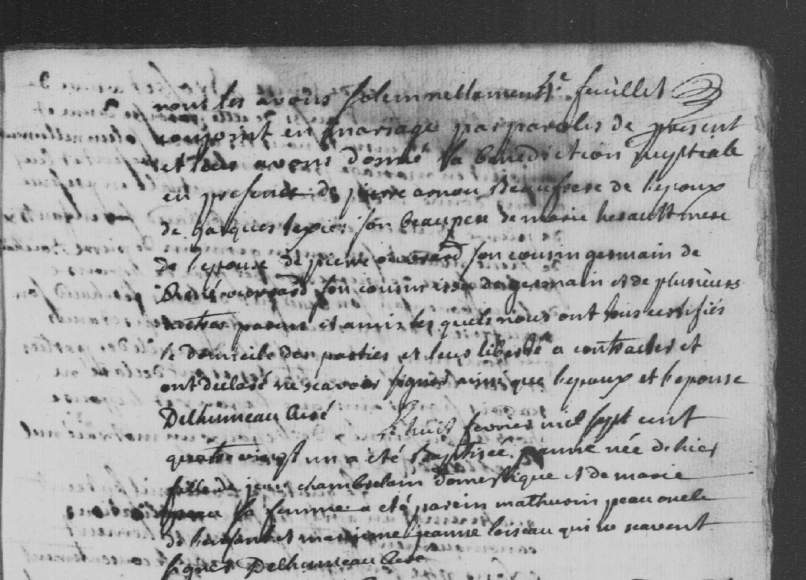 nous les avons solemnellement 4.e feuillet
conjoint en mariage par paroles de present
et leur avons donné la benediction nuptiale
en presence de pierre arnou beaufrere de lepoux
de jacques texier son beaupere de marie herault mere
de lepouse de pierre son cousin germain de
son cousin germain et de plusieurs
autres parens et amis les quels nous ont tous certifiés
le domicile des parties et leur liberté a contracter et
ont declaré ne scavoir signer ainsi que lepoux et lepouse
Delhumeau Curé le huit fevrier mil sept cent
quatre vingt un a été baptisée jeanne née dhier
fille de jean chambrelain domestique et de marie
sa femme a été parein mathurin peau oncle
de lenfant et mareinne jeanne loiseau qui ne scavent
signer Delhumeau Curé